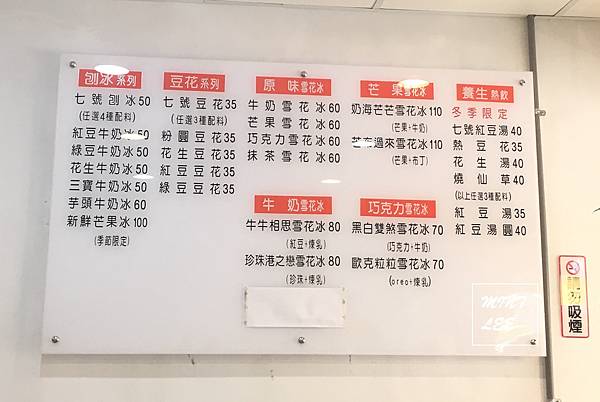 刨冰系列
七號刨冰50
(任選4種配料)
紅豆牛奶冰50
綠豆牛奶冰50
花生牛奶冰50
三寶牛奶冰50
芋頭牛奶冰60
新鮮芒果冰100
(季節限定)
豆花系列
七號豆花35
(任選3種配料)
粉圓豆花35
花生豆花35
紅豆豆花35
綠豆豆花35
原味雪花冰
牛奶雪花冰60
芒果雪花冰60
巧克力雪花冰60
抹茶雪花冰60
牛奶雪花冰
牛牛相思雪花冰80
(紅豆+煉乳)
珍珠港之戀雪花冰80
(珍珠+煉乳)
芒果雪花冰
奶海芒芒雪花冰110
(芒果+牛奶)
過來雪花冰110
(芒果+布丁)
巧克力雪花冰
黑白雙煞雪花冰70
(巧克力+牛奶)
歐克粒粒雪花冰70
(oreo+煉乳)
養生熱飲
冬季限定
七號紅豆湯40
熱豆花35
花生湯40
燒仙草40
(以上任選3種配料)
紅豆湯35
紅豆湯圓40
MINT
LEE
吸煙